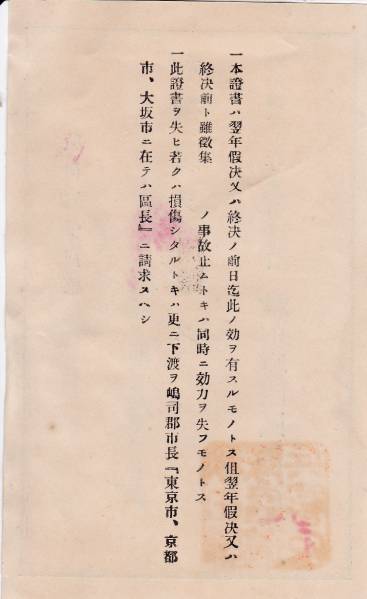 一本證書ハ翌年假决又ハ終决ノ前日迄此ノ効ヲ有スルモノトス伹翌年假决又ハ
終决前ト雖徵集 ノ事故止ムトキハ同時ニ効力ヲ失フモノトス
一此證書ヲ失ヒ若クハ損傷シタルトキハ更ニ下渡ヲ嶋司郡市長『東京市、京都
市、大坂市ニ在テハ區長』ニ請求スヘシ